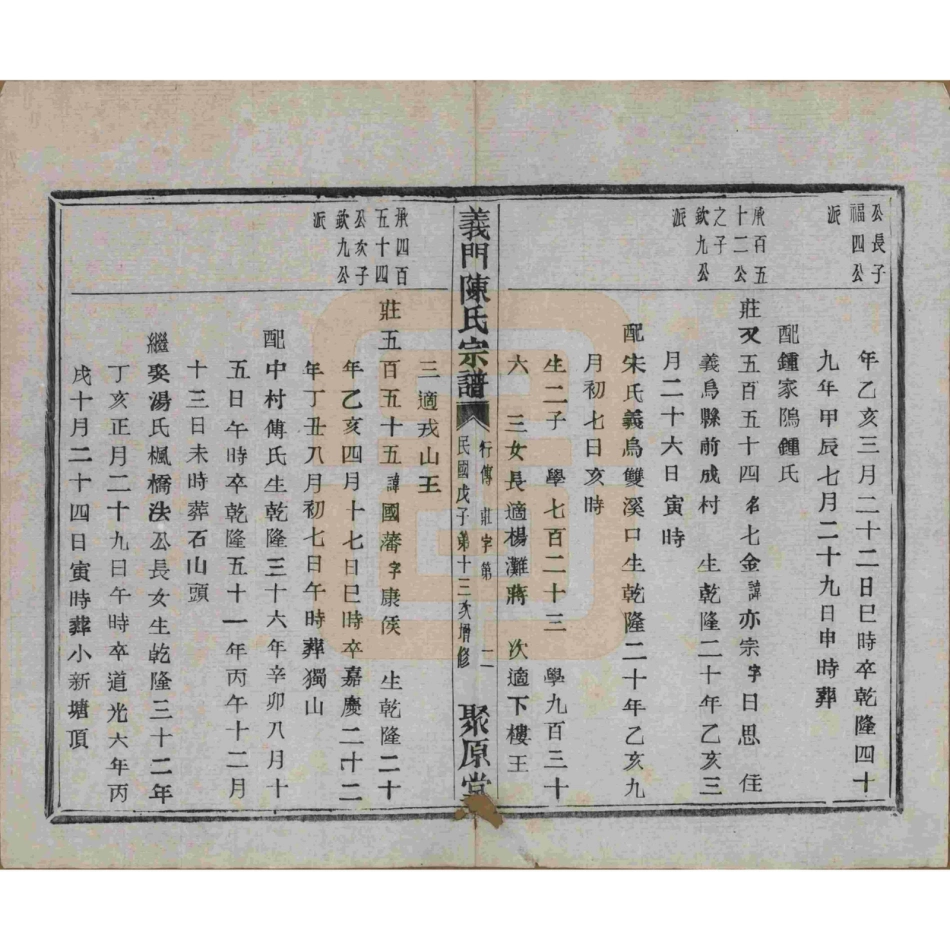 公長子
福四公
派
年乙亥三月二十二日巳時卒乾隆四十
九年甲辰七月二十九日申時葬
配鍾家隖鍾氏
承百五
十二公
之子
欽九公
派
莊又五百五十四名七金諱亦宗字日思 住
義烏縣前成村 生乾隆二十年乙亥三
月二十六日寅時
配宋氏義烏雙溪口生乾隆二十年乙亥九
月初七日亥時
生二子 學七百二十三 學九百三十
六 三女長適楊灘蔣 次適下樓王
義門陳氏宗譜
行傳 莊字第 二
民國戊子第十三次增修
聚原堂
三適戎山王
承四百
五十四
公次子
欽九公
派
莊五百五十五諱國藩字康侯 生乾隆二十
年乙亥四月十七日巳時卒嘉慶二十二
年丁丑八月初七日午時葬獨山
配中村傳氏生乾隆三十六年辛卯八月十
五日午時卒乾隆五十一年丙午十二月
十三日未時葬石山頭
繼娶湯氏楓橋泆公長女生乾隆三十二年
丁亥正月二十九日午時卒道光六年丙
戌十月二十四日寅時葬小新塘頂